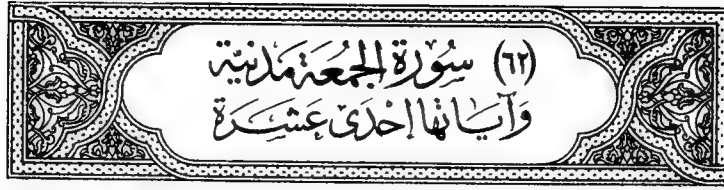 (٦٢) سُورَةُ الجُمُعَةِ مَدَنِيَّة
وَآيَاتُهَا إِحْدَى عَشَرَة